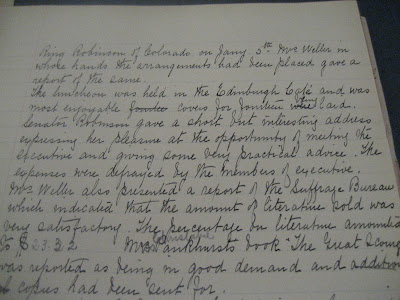 Ring Robinson of Colorado on Jany 5th. Mrs Weller in
whose hands the arrangements had been placed gave a
report of the same.
The luncheon was held in the Edinburgh Café and was
most enjoyable covers for fourteen were laid.
Senator Robinson gave a short but interesting address
expressing her pleasure at the opportunity of meeting the
Executive and giving some very practical advice. The
expenses were defrayed by the members of executive.
Mrs Weller also presented a report of the Suffrage Bureau
which indicated that the amount of literature sold was
very satisfactory. The percentage on literature amounted
to $23.32 Mrs Pankhursts book "The Great Scourge
was reported as being in good demand and
copies had been sent for.